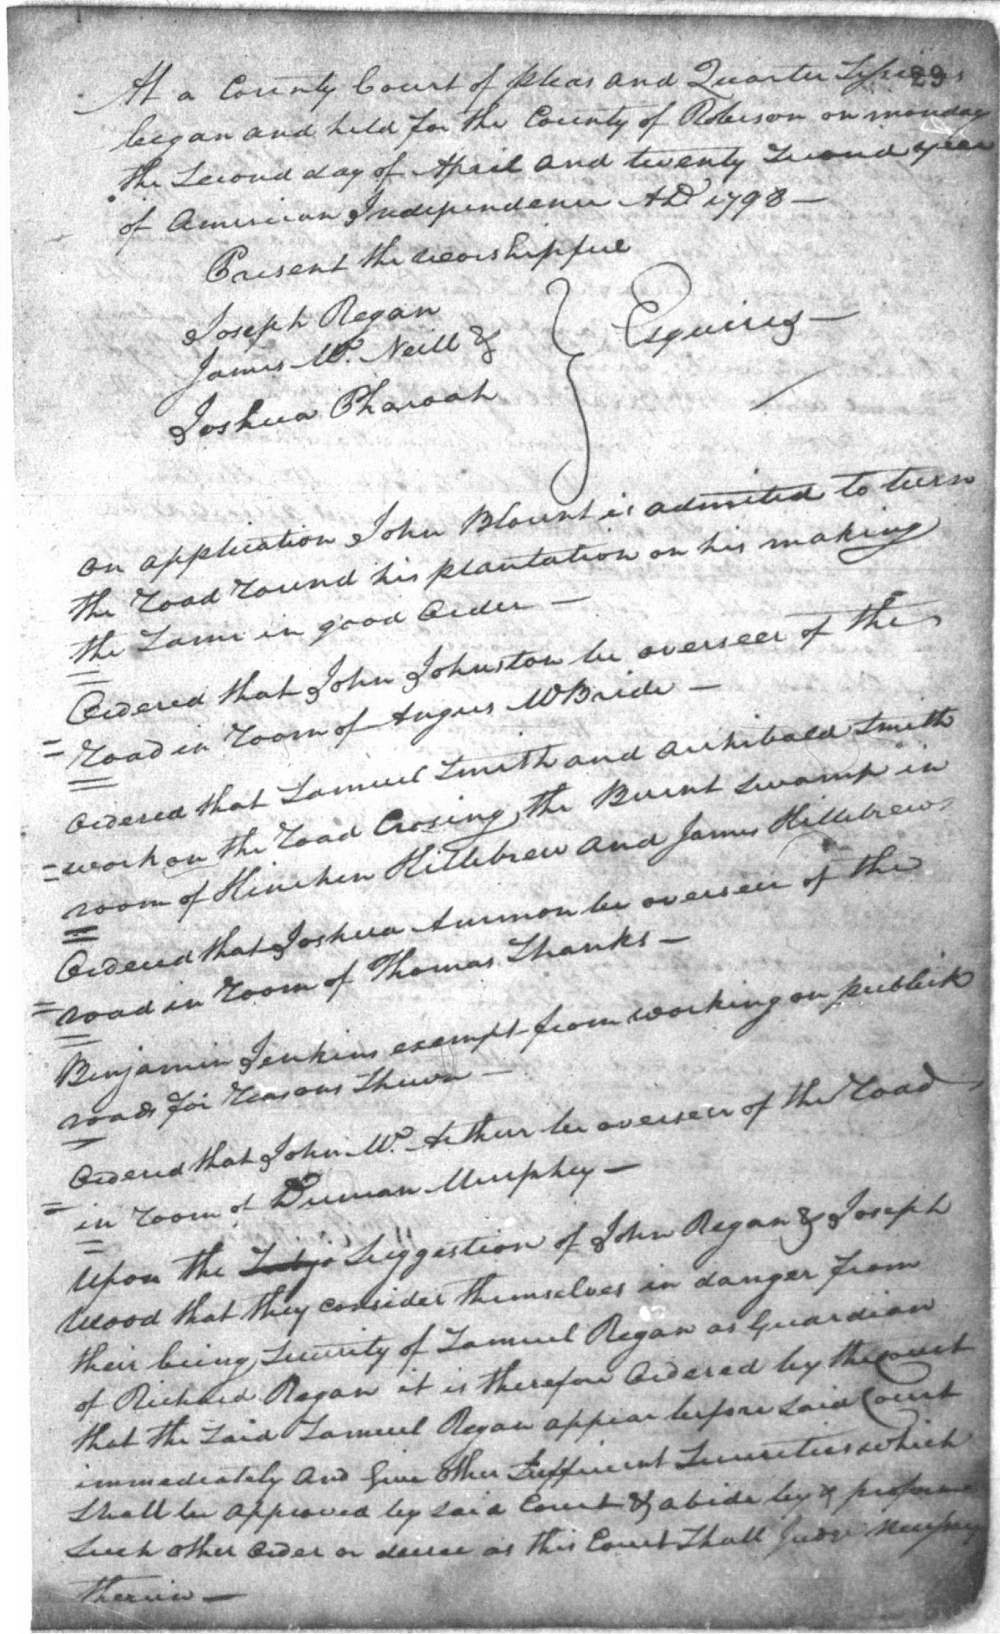 29
At a County Court of pleas and Quarter Sessions
began and held for the County of Robeson on monday
the Second day of April and twenty Second year
of American Independence AD 1798 —
Present the worshipful
Joseph Regan
James Mc. Neill &
Joshua Pharoah
Esquires —
on application John Blount is admitted to turn
the Road Round his plantation on his making
the Same in good order —
Ordered that John Johnston be overseer of the
Road in Room of Angus McBride —
Ordered that Samuel Smith and Archibald Smith
work on the Road Crosing the Burnt Swamp in
room of Kinchen Killebrew and James Killebrew
Ordered that Joshua be overseer of the
road in room of Thomas Shanks —
Binjamin Jenkins exempt from working on publick
roads for Reasons Shewn —
Ordered that John Mc. Arthur be overseer of the Road
in room of Duncan Murphey —
Upon the Suggestion of John Regan & Joseph
Wood that they consider themselves in danger from
their being Security of Samuel Regan as Guardian
of Richard Regan it is therefore Ordered by the Court
that the Said Samuel Regan appear before Said Court
immediately and Give other Sufficient Securities which
Shall be approved by Said Court & abide by & preforme
Such other order or decree as this Court Shall Judge
therein —